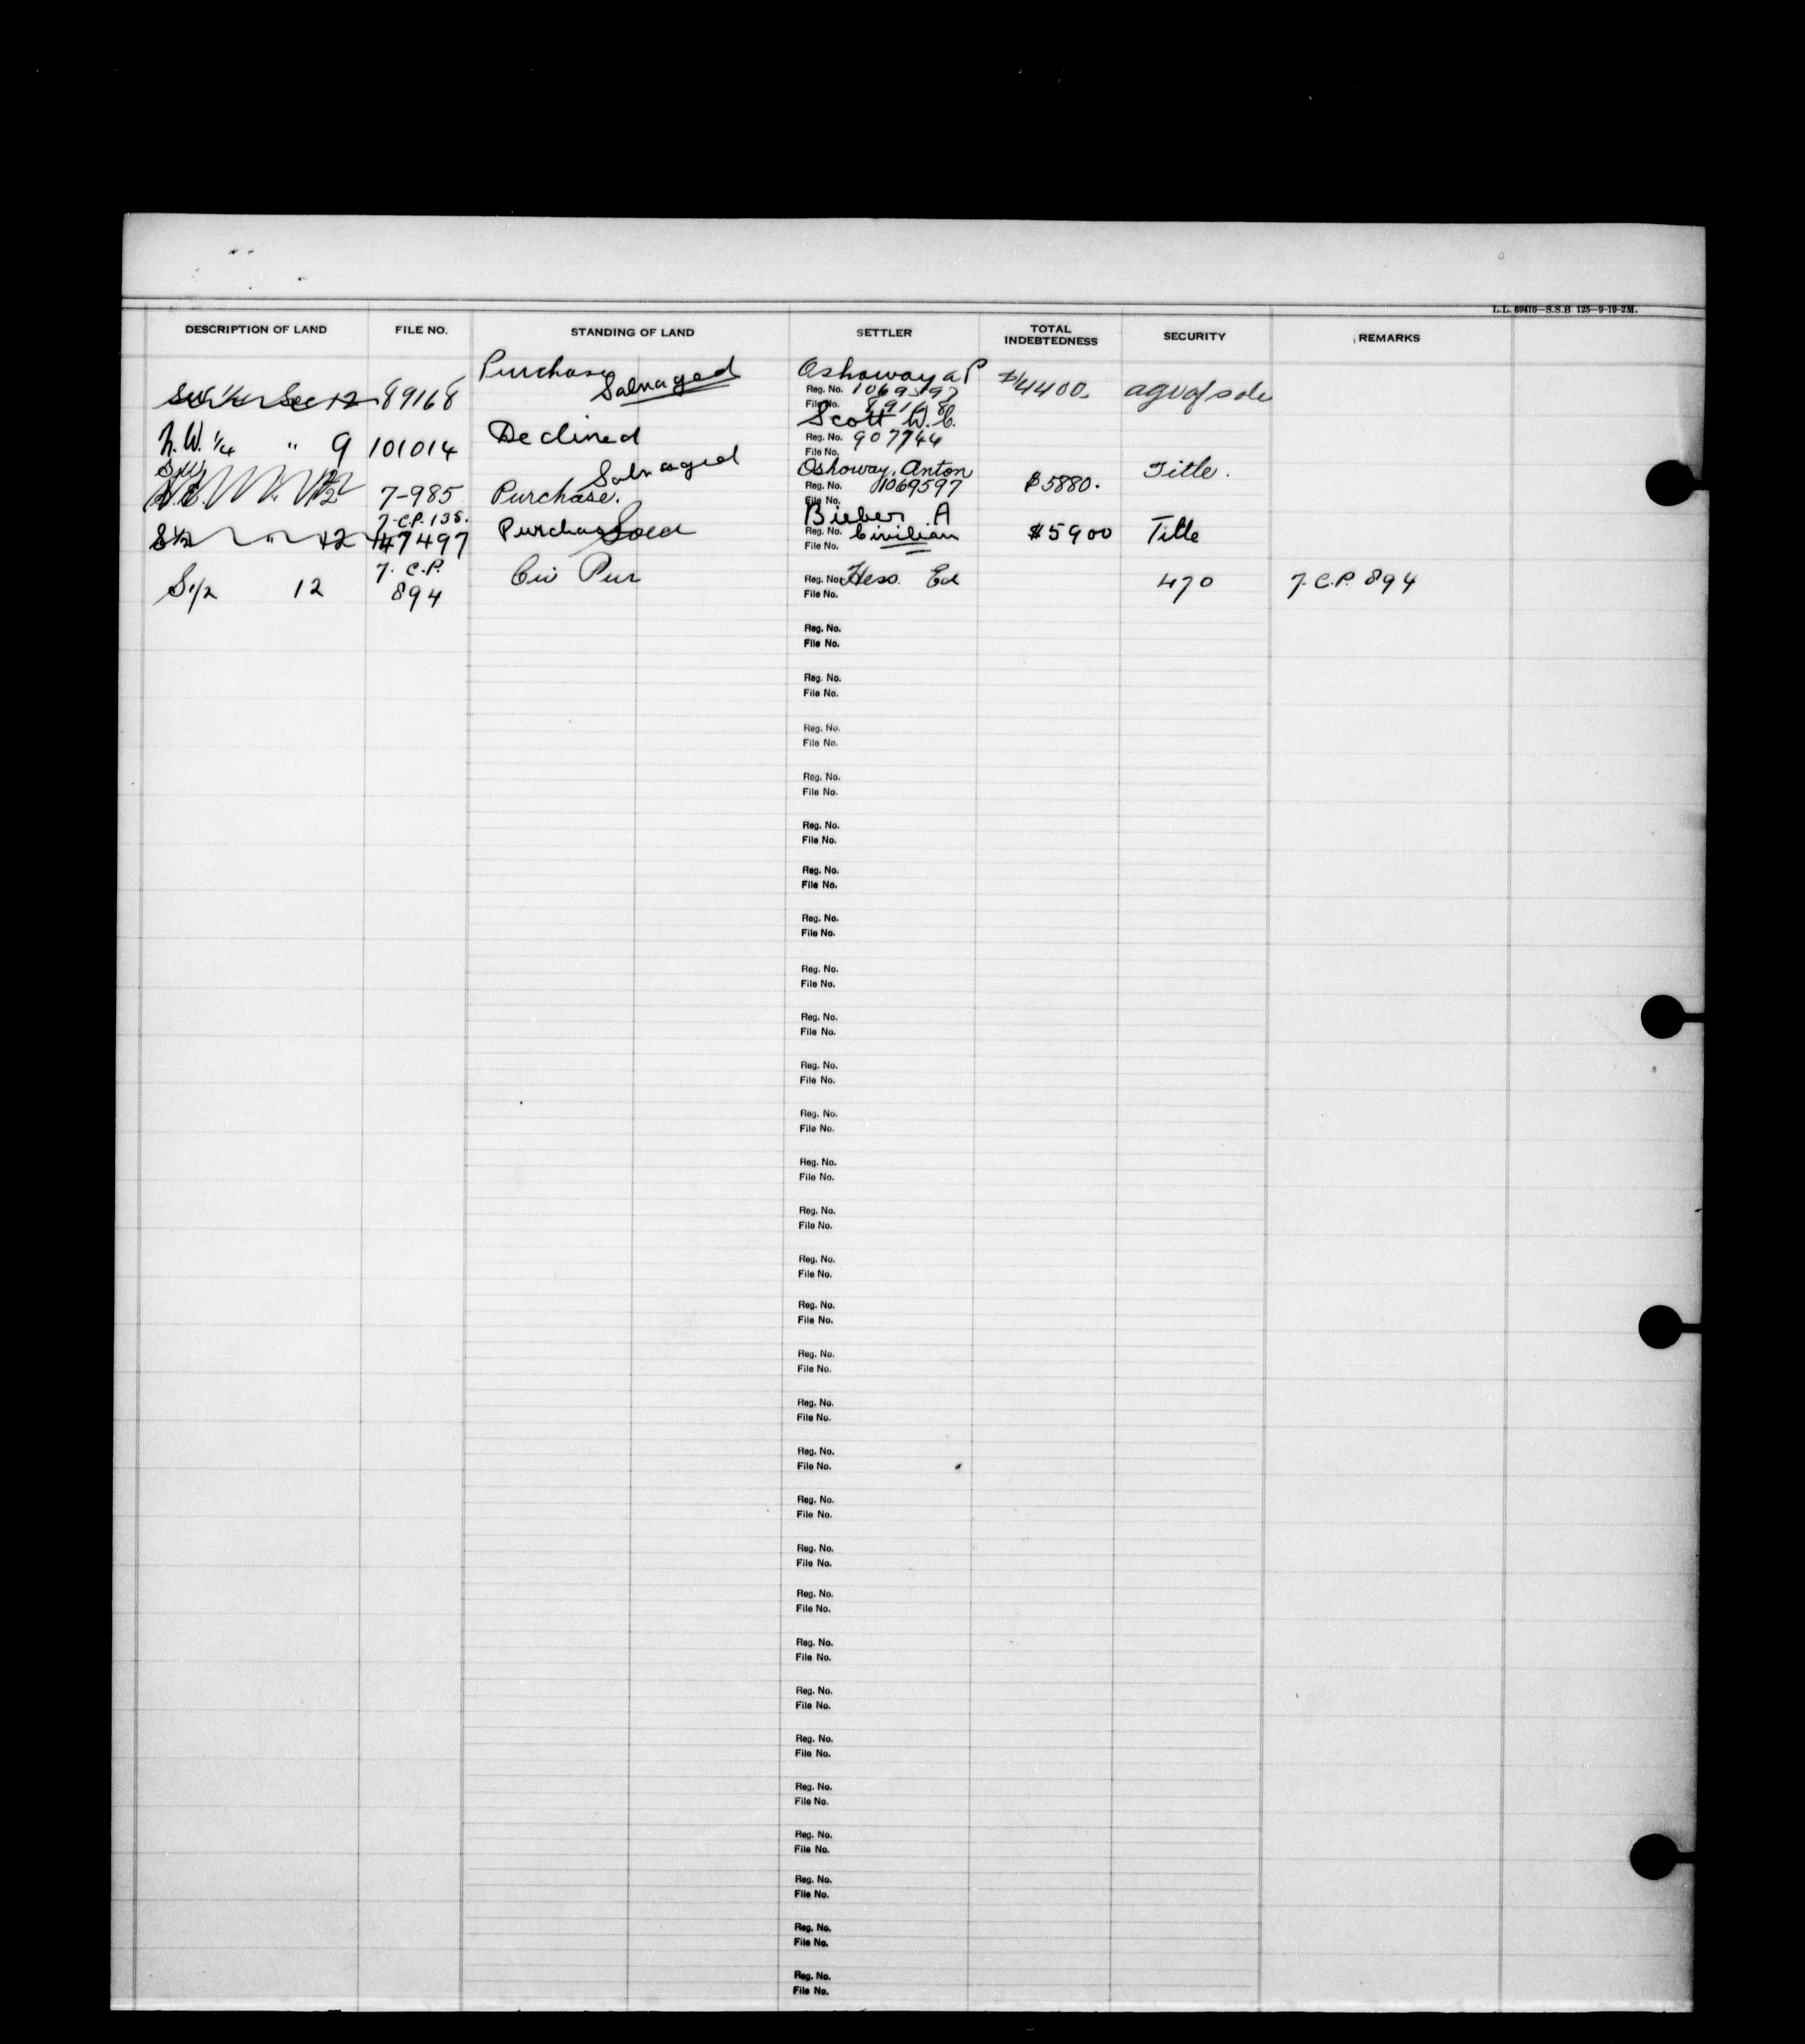 L.L. 69410—S.S.B 125—9-19-2M.
DESCRIPTION OF LAND FILE NO. STANDING OF LAND SETTLER TOTAL INDEBTEDNESS SECURITY REMARKS
Purchase Salvaged Oshoway A P
SW 1/4 Sec 12 89168 Reg. No. 1069597 $4400. agr of sale
File No. 89168
Scott W. C.
N.W. 1/4 " 9 101014 Declined Reg. No. 907744
File No.
SW Salvaged Oshoway, Anton Title.
12 7-985 Purchase. Reg. No. 1069597 $5880.
File No.
7-C.P. 135. Bieber A
S 1/2 " 12 47497 Purchase Sold Reg. No. Civilian $5900 Title
File No.
7. C.P. Civ Pur
S 1/2 12 894 Reg. No. Hess. Ed 470 7. C.P. 894
File No.
Reg. No.
File No.
Reg. No.
File No.
Reg. No.
File No.
Reg. No.
File No.
Reg. No.
File No.
Reg. No.
File No.
Reg. No.
File No.
Reg. No.
File No.
Reg. No.
File No.
Reg. No.
File No.
Reg. No.
File No.
Reg. No.
File No.
Reg. No.
File No.
Reg. No.
File No.
Reg. No.
File No.
Reg. No.
File No.
Reg. No.
File No.
Reg. No.
File No.
Reg. No.
File No.
Reg. No.
File No.
Reg. No.
File No.
Reg. No.
File No.
Reg. No.
File No.
Reg. No.
File No.
Reg. No.
File No.
Reg. No.
File No.
Reg. No.
File No.
Reg. No.
File No.
Reg. No.
File No.